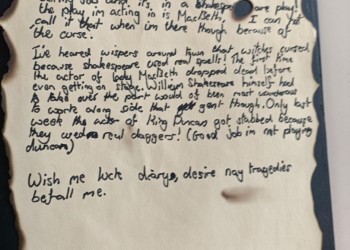 acting job and it's in a shakespeare play!
the play im acting in is MacBeth, I can not
call it that when im there though because of
the curse.
I've heared wispers around town that witches cursed
because shakespeare used real spells! The first time
the actor of lady MacBeth dropped dead before
even getting on stage. William Shakespeare himself had
to take over the part would of been most wonderous
to work along side that gent though. Only last
week the actor of King Duncan got stabbed because
they used real daggers! (Good job im not playing
duncan)
Wish me luck diarye, desire nay tragedies
befall me.